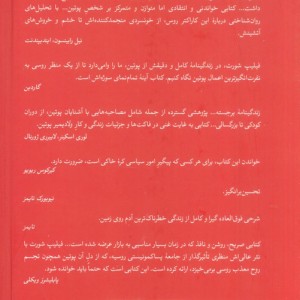 داشت... کتابی خواندنی و انتقادی اما متوازن و متمرکز بر شخص پوتین... با تحلیل‌های
روان‌شناختی درباره این کاراکتر روس، از خونسردی منجمدکننده‌اش تا خشم و خروش‌های
آتشینش.
نیل رابینسون، ایندیپندنت
فیلیپ شورت، در زندگینامهٔ کامل و دقیقش از پوتین، ما را وامی‌دارد تا از یک منظر روسی به
نفرت‌انگیزترین اعمال پوتین نگاه کنیم. کتاب آینهٔ تمام‌نمای سوژه‌اش است.
گاردین
زندگینامهٔ برجسته... پژوهشی گسترده از جمله شامل مصاحبه‌هایی با آشنایان پوتین، از دوران
کودکی تا بزرگسالی... کتابی به غایت غنی در فاکت‌ها و جزئیات زندگی و کار ولادیمیر پوتین.
لایبرری ژورنال
خواندن این کتاب، برای هر کسی که پیگیر امور سیاسی کرهٔ خاکی است، ضرورت دارد.
کیرکوس ریویو
تحسین‌برانگیز.
نیویورک تایمز
شرحی فوق‌العاده گیرا و کامل از زندگی خطرناک‌ترین آدم روی زمین.
تایمز
کتابی صریح، روشن و نافذ، که در زمان بسیار مناسبی به بازار عرضه شده است... فیلیپ شورت با
نثر عالی‌اش منظری تأثیرگذار از جامعهٔ پساکمونیستی روسیه، که از دل آن پوتین همچون تجسم
روح معذب روسی برمی‌خیزد، ارائه کرده است. این کتابی است که حتماً باید خوانده شود.
پابلیشرز ویکلی